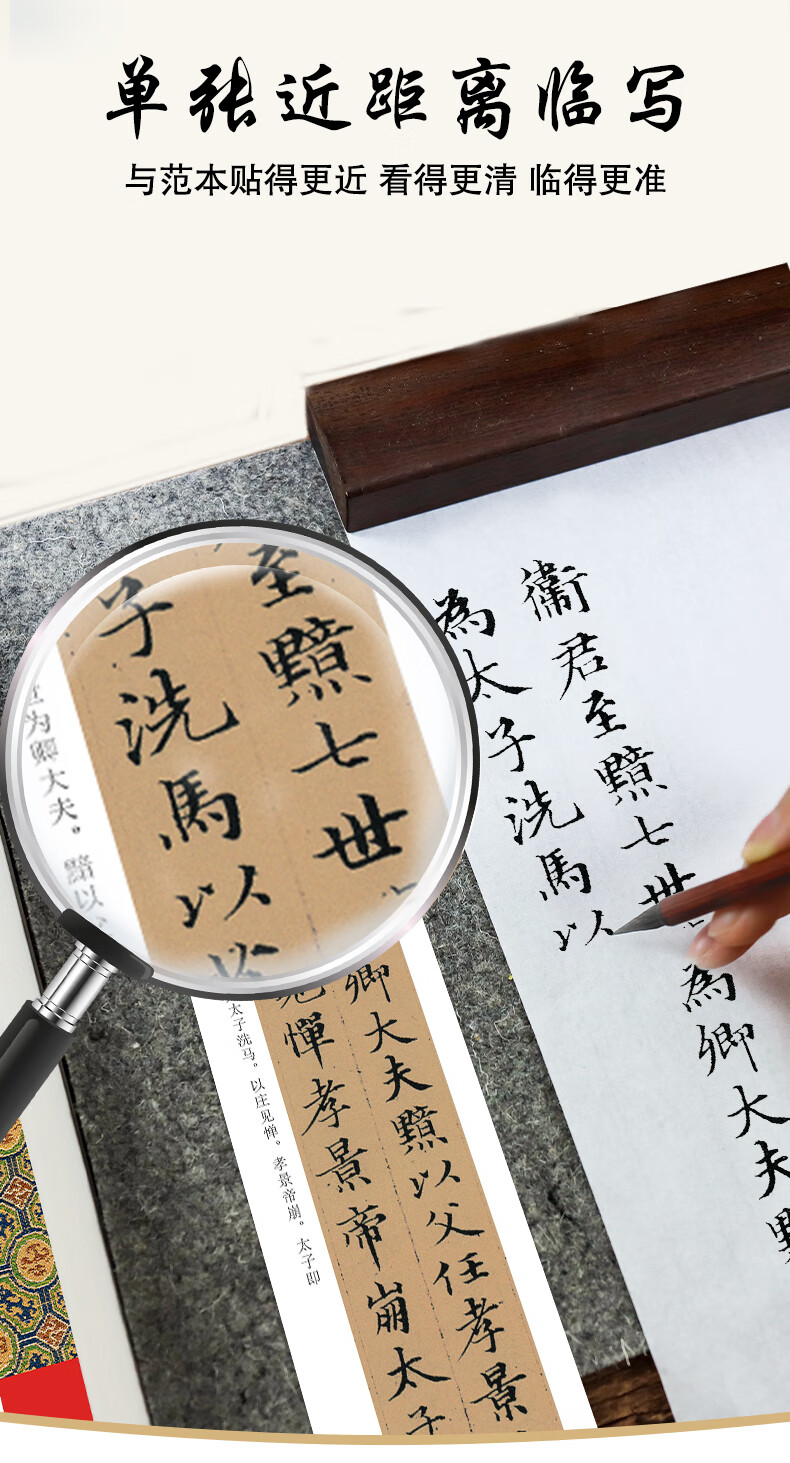 单张近距离临写
与范本贴得更近 看得更清 临得更准
衞君至黯七世
為卿大夫黯
為太子洗馬以
至黯七世
子洗馬以
世为卿大夫。黯以
卿大夫黯以父任孝景
見憚孝景帝崩太子
太子洗马。以庄见惮。孝景帝崩。太子即